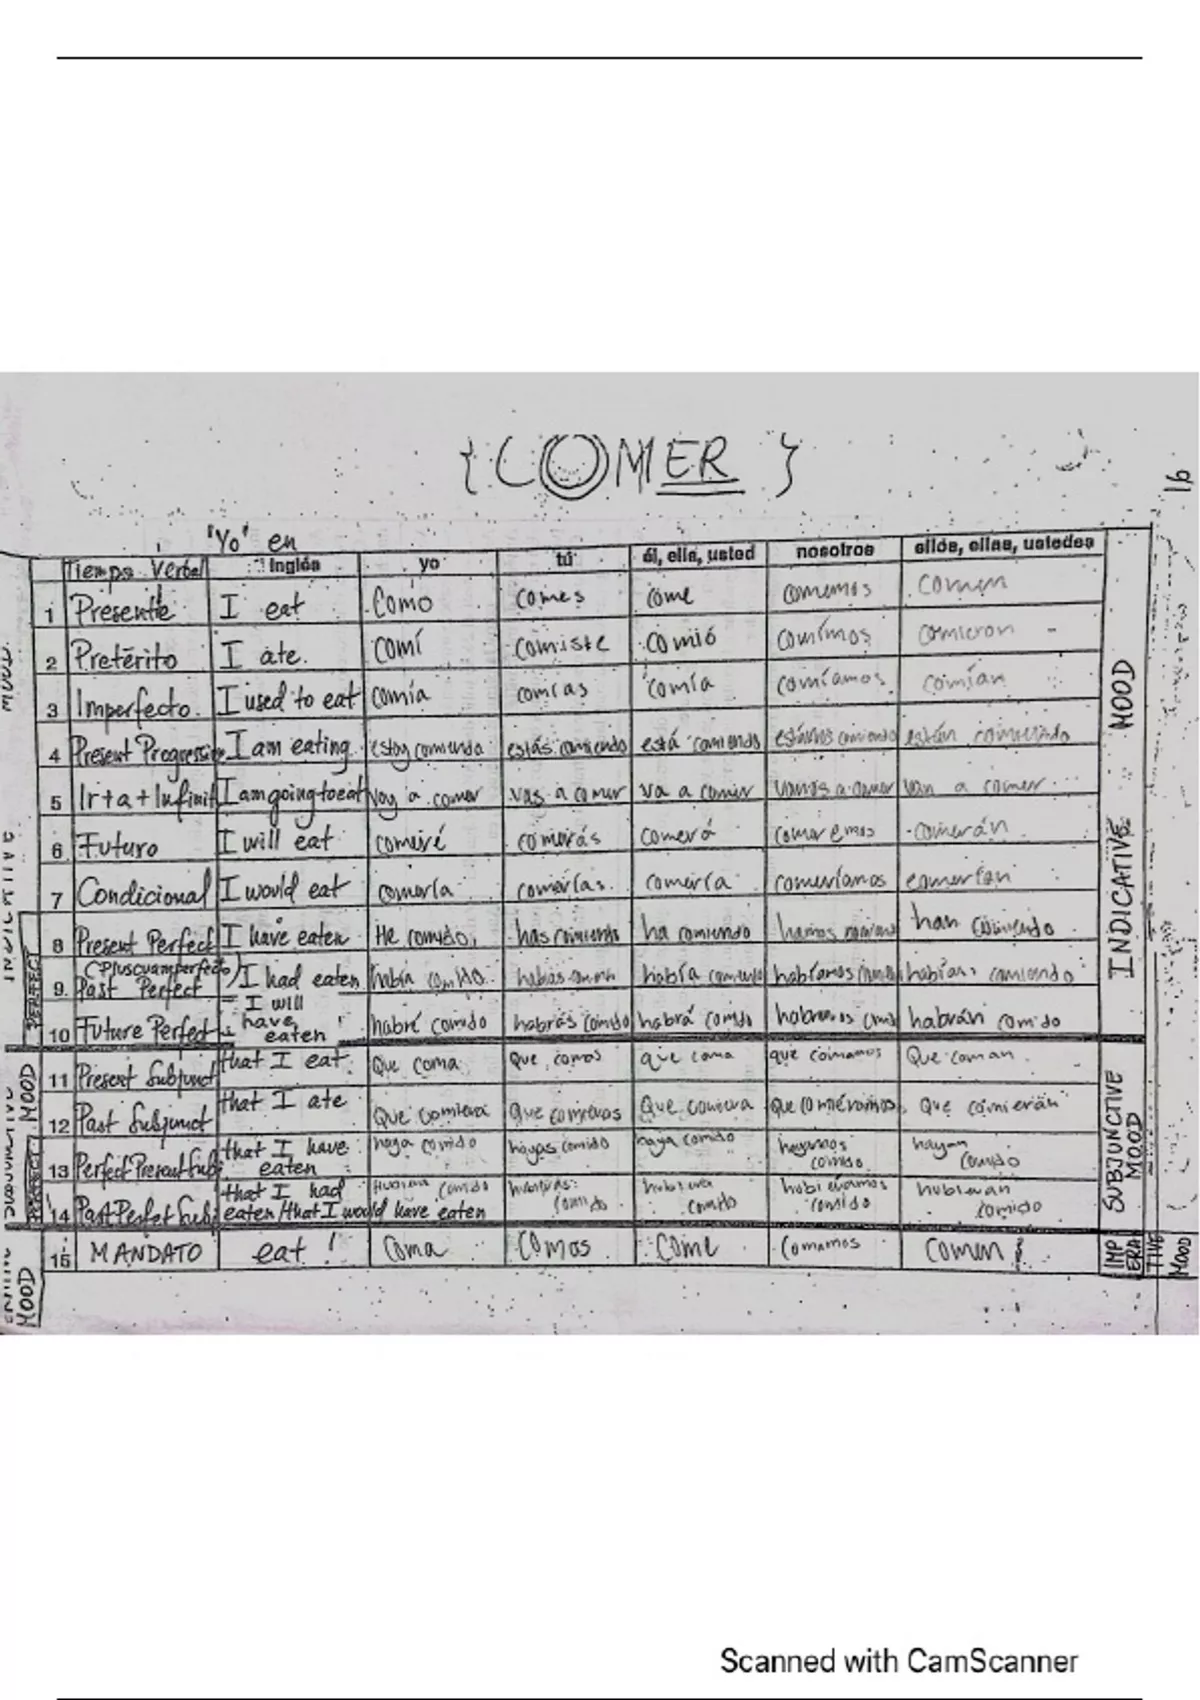 {COMER}
16
"Yo" en
Tiempo Verbal Inglés yo tú él, ella, usted nosotros ellos, ellas, ustedes
1 Presente I eat Como comes come comemos comen
2 Pretérito I ate. comí comiste comió comimos comieron
3 Imperfecto. I used to eat comía comías comía comíamos comían
4 Present Progressive I am eating. estoy comiendo estás comiendo está comiendo estamos comiendo están comiendo
5 Ir + a + Infinit I am going to eat voy a comer vas a comer va a comer vamos a comer van a comer
6 Futuro I will eat comeré comerás comerá comeremos comerán
7 Condicional I would eat comería comerías. comería comeríamos comerían
8 Present Perfect I have eaten He comido, has comiendo ha comiendo hamos han comiendo
9. (Pluscuamperfecto) Past Perfect I had eaten había comido habías había comiendo habíamos habían comiendo
10 Future Perfect = I will have eaten habré comido habrás comido habrá comido habremos habrán comido
11 Present Subjunct that I eat Que coma que comas que coma que comamos Que coman
12 Past Subjunct that I ate Que comiera que comieras Que comiera que comiéramos que comieran
13 Perfect Present Subj that I have eaten haya comido hayas comido haya comido hayamos comido hayan comido
14 Past Perfect Subj that I had eaten/that I would have eaten comido comido comido comido comido
15 MANDATO eat! Coma Comas Come Comamos Comen!
INDICATIVE MOOD
SUBJUNCTIVE MOOD
IMPERATIVE MOOD
PERFECT
MOOD
PERFECT
MOOD
Scanned with CamScanner